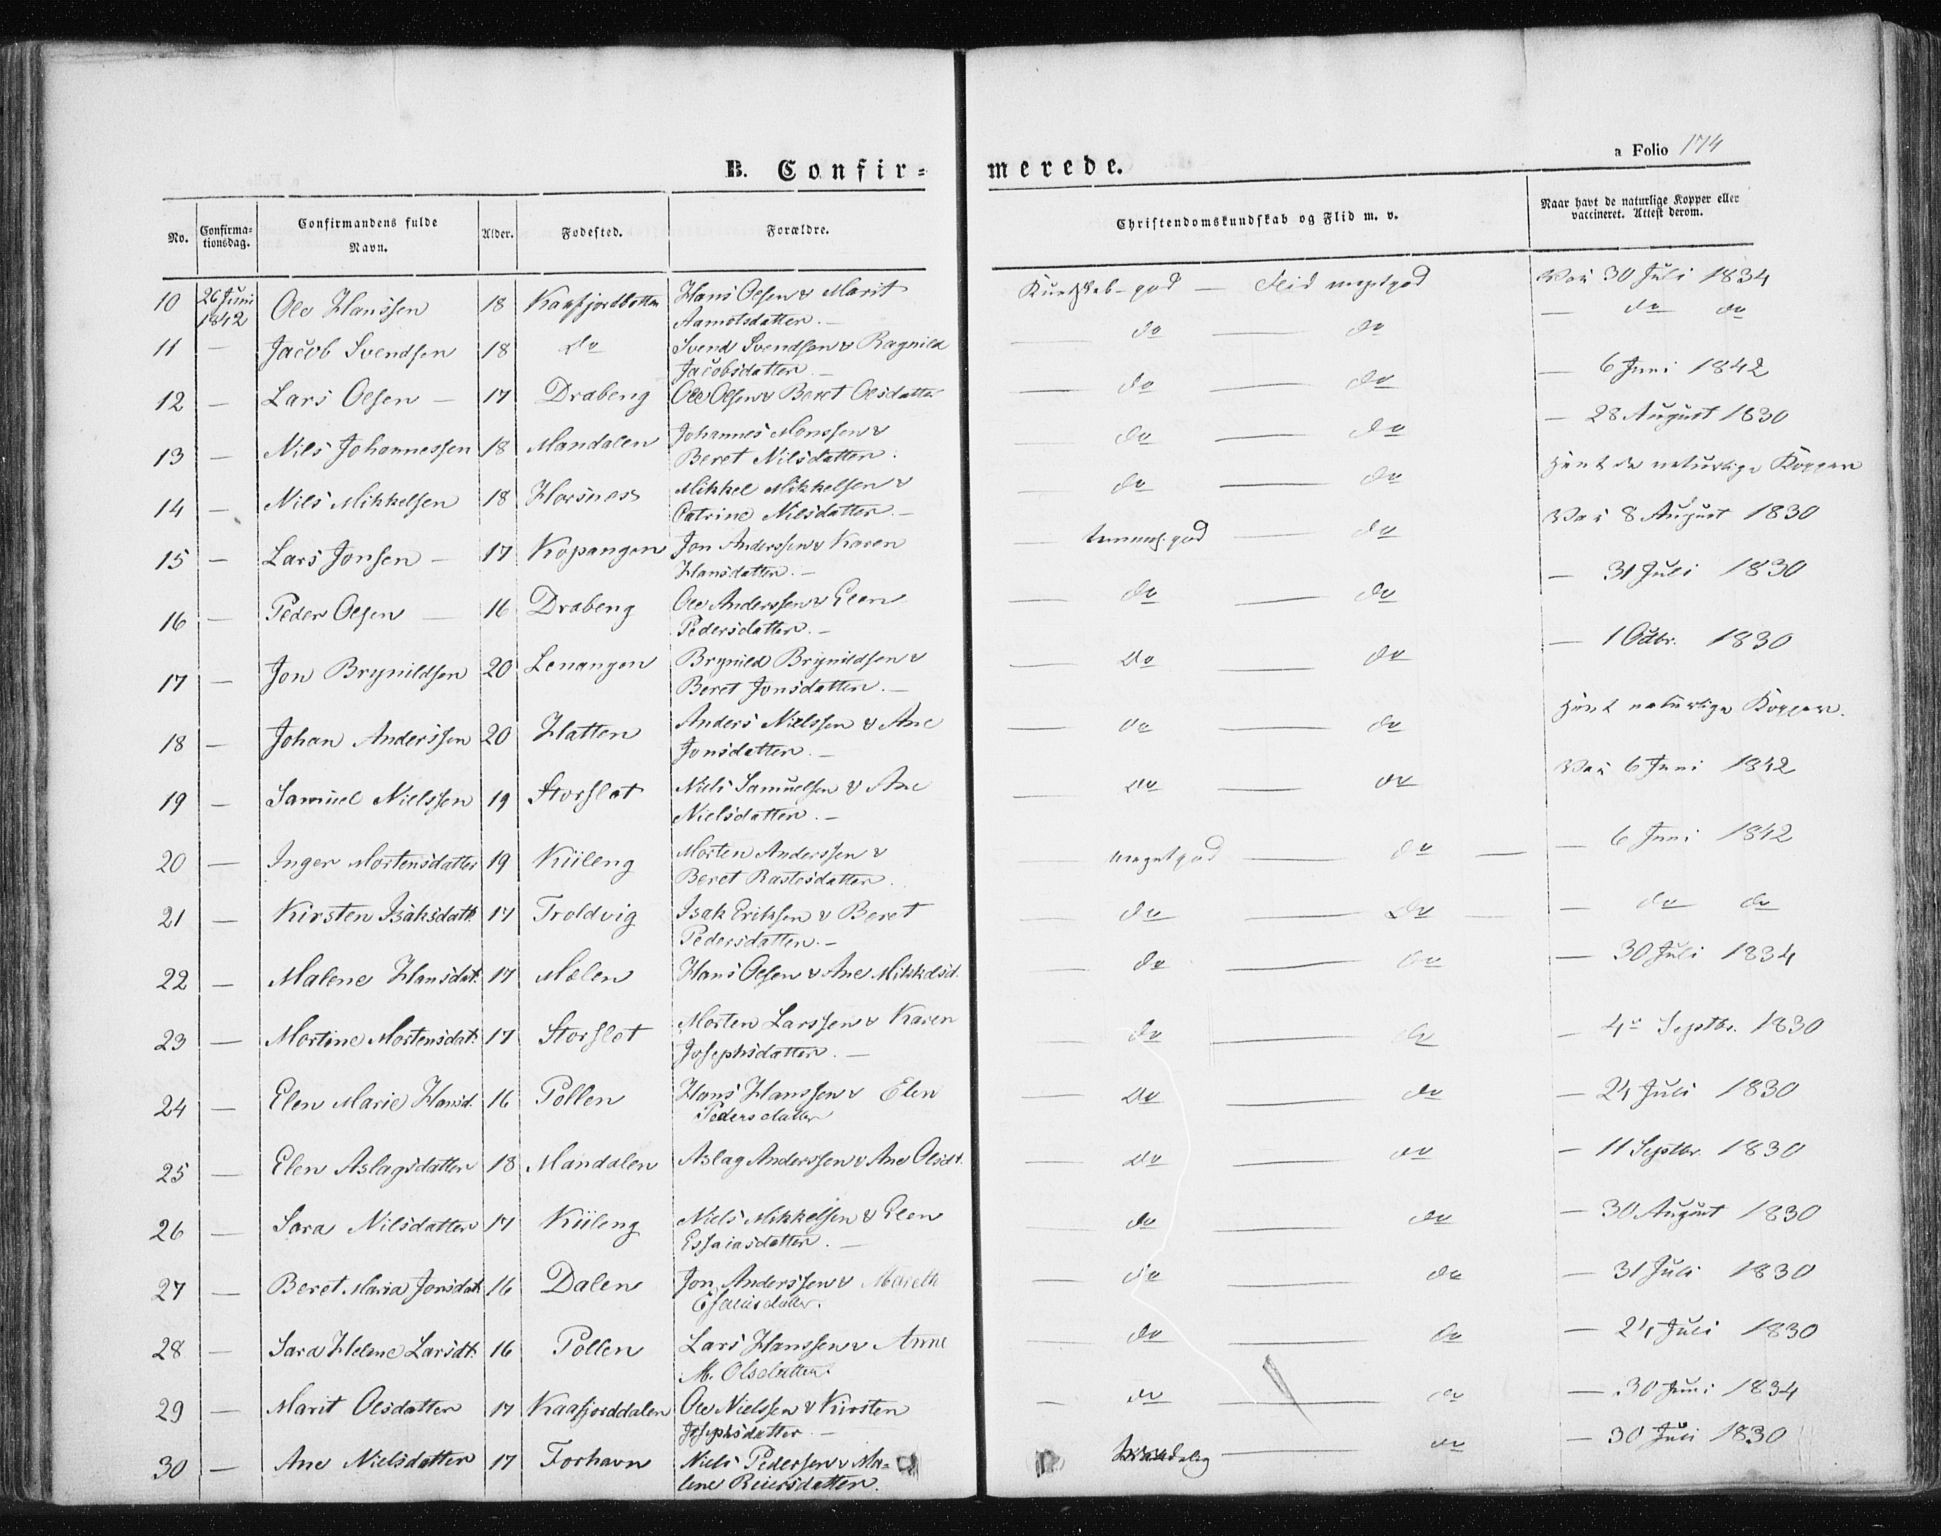 a Folio 174
B. Confir-merede.
No. Confirma-tionsdag. Confirmandens fulde Navn. Alder. Fodested. Forældre. Christendomskundskab og Flid m. v. Naar havt de naturlige Kopper eller vaccineret. Attest derom.
10 26 Juni 1842 Ole Hanssen 18 Kaafjordbotten Hans Olsen & Marit Kundskab god — Flid megetgod Vac 30 Juli 1834
Aamotsdatter. —
11 — Jacob Svendsen 18 do Svend Svendsen & Ragnild — do — do — do do
Jacobsdatter. —
12 — Lars Olsen — 17 Drabeng Ole Olsen & Beret Olsdatter — do — do — 6 Juni 1842
13 — Nils Johannessen 18 Mandalen Johannes Monssen & — do — do — 28 August 1830
Beret Nilsdatter.
14 — Nils Mikkelsen 18 Horsnes Mikkel Mikkelsen & — do — do havt de naturlige Kopper
Catrine Nilsdatter. —
15 — Lars Jonsen — 17 Kopangen Jon Anderssen & Karen — temmel. god do Vac 8 August 1830
Hansdatter. —
16 — Peder Olsen — 16 Drabeng Ole Anderssen & Elen — do — do — 31 Juli 1830
Pedersdatter. —
17 — Jon Brynildsen 20 Lenangen Brynild Brynildsen & — do — do — 1 Octbr. 1830
Beret Jonsdatter. —
18 — Johan Anderssen 20 Hatten Anders Nielssen & Ane — do — do havt naturlige Kopper.
Jonsdatter. —
19 — Samuel Nielssen 19 Storslet Niels Samuelsen & Ane — do — do Vac 6 Juni 1842
Nielsdatter. —
20 — Inger Mortensdatter 19 Kiileng Morten Anderssen & megetgod — do — — 6 Juni 1842
Beret Rastesdatter.
21 — Kirsten Isaksdatt. 17 Troldvig Isak Eriksen & Beret — do — do — — do do
Pedersdatter. —
22 — Malene Hansdat. 17 Molen Hans Olsen & Ane Mikkelsd. — do — do — 30 Juli 1834
23 — Mortine Mortensdat. 17 Storslet Morten Larssen & Karen — do — do — 4de Septbr. 1830
Josephsdatter. —
24 — Elen Marie Hansd. 16 Pollen Hans Hanssen & Elen — do — do — 24 Juli 1830
Pedersdatter
25 — Elen Aslagsdatter 18 Mandalen Aslag Anderssen & Ane Olsdt. — do — do — 11 Septbr. 1830
26 — Sara Nilsdatter 17 Kiileng Niels Mikkelsen & Elen — do — do — 30 August 1830
Essaiasdatter. —
27 — Beret Maria Jonsdat. 16 Dalen Jon Anderssen & Mareth — do — do — 31 Juli 1830
Esaiasdatter.
28 — Sara Helene Larsdt. 16 Pollen Lars Hanssen & Anne — do — do — 24 Juli 1830
M. Olsdatter.
29 — Marit Olsdatter 17 Kaafjorddalen Ole Nielssen & Kirsten — do — do — 30 Juni 1834
Josephsdatter. —
30 — Ane Nielsdatter 17 Forhavn Niels Pedersen & Ma- — do — 30 Juli 1830
lene Reiersdatter.